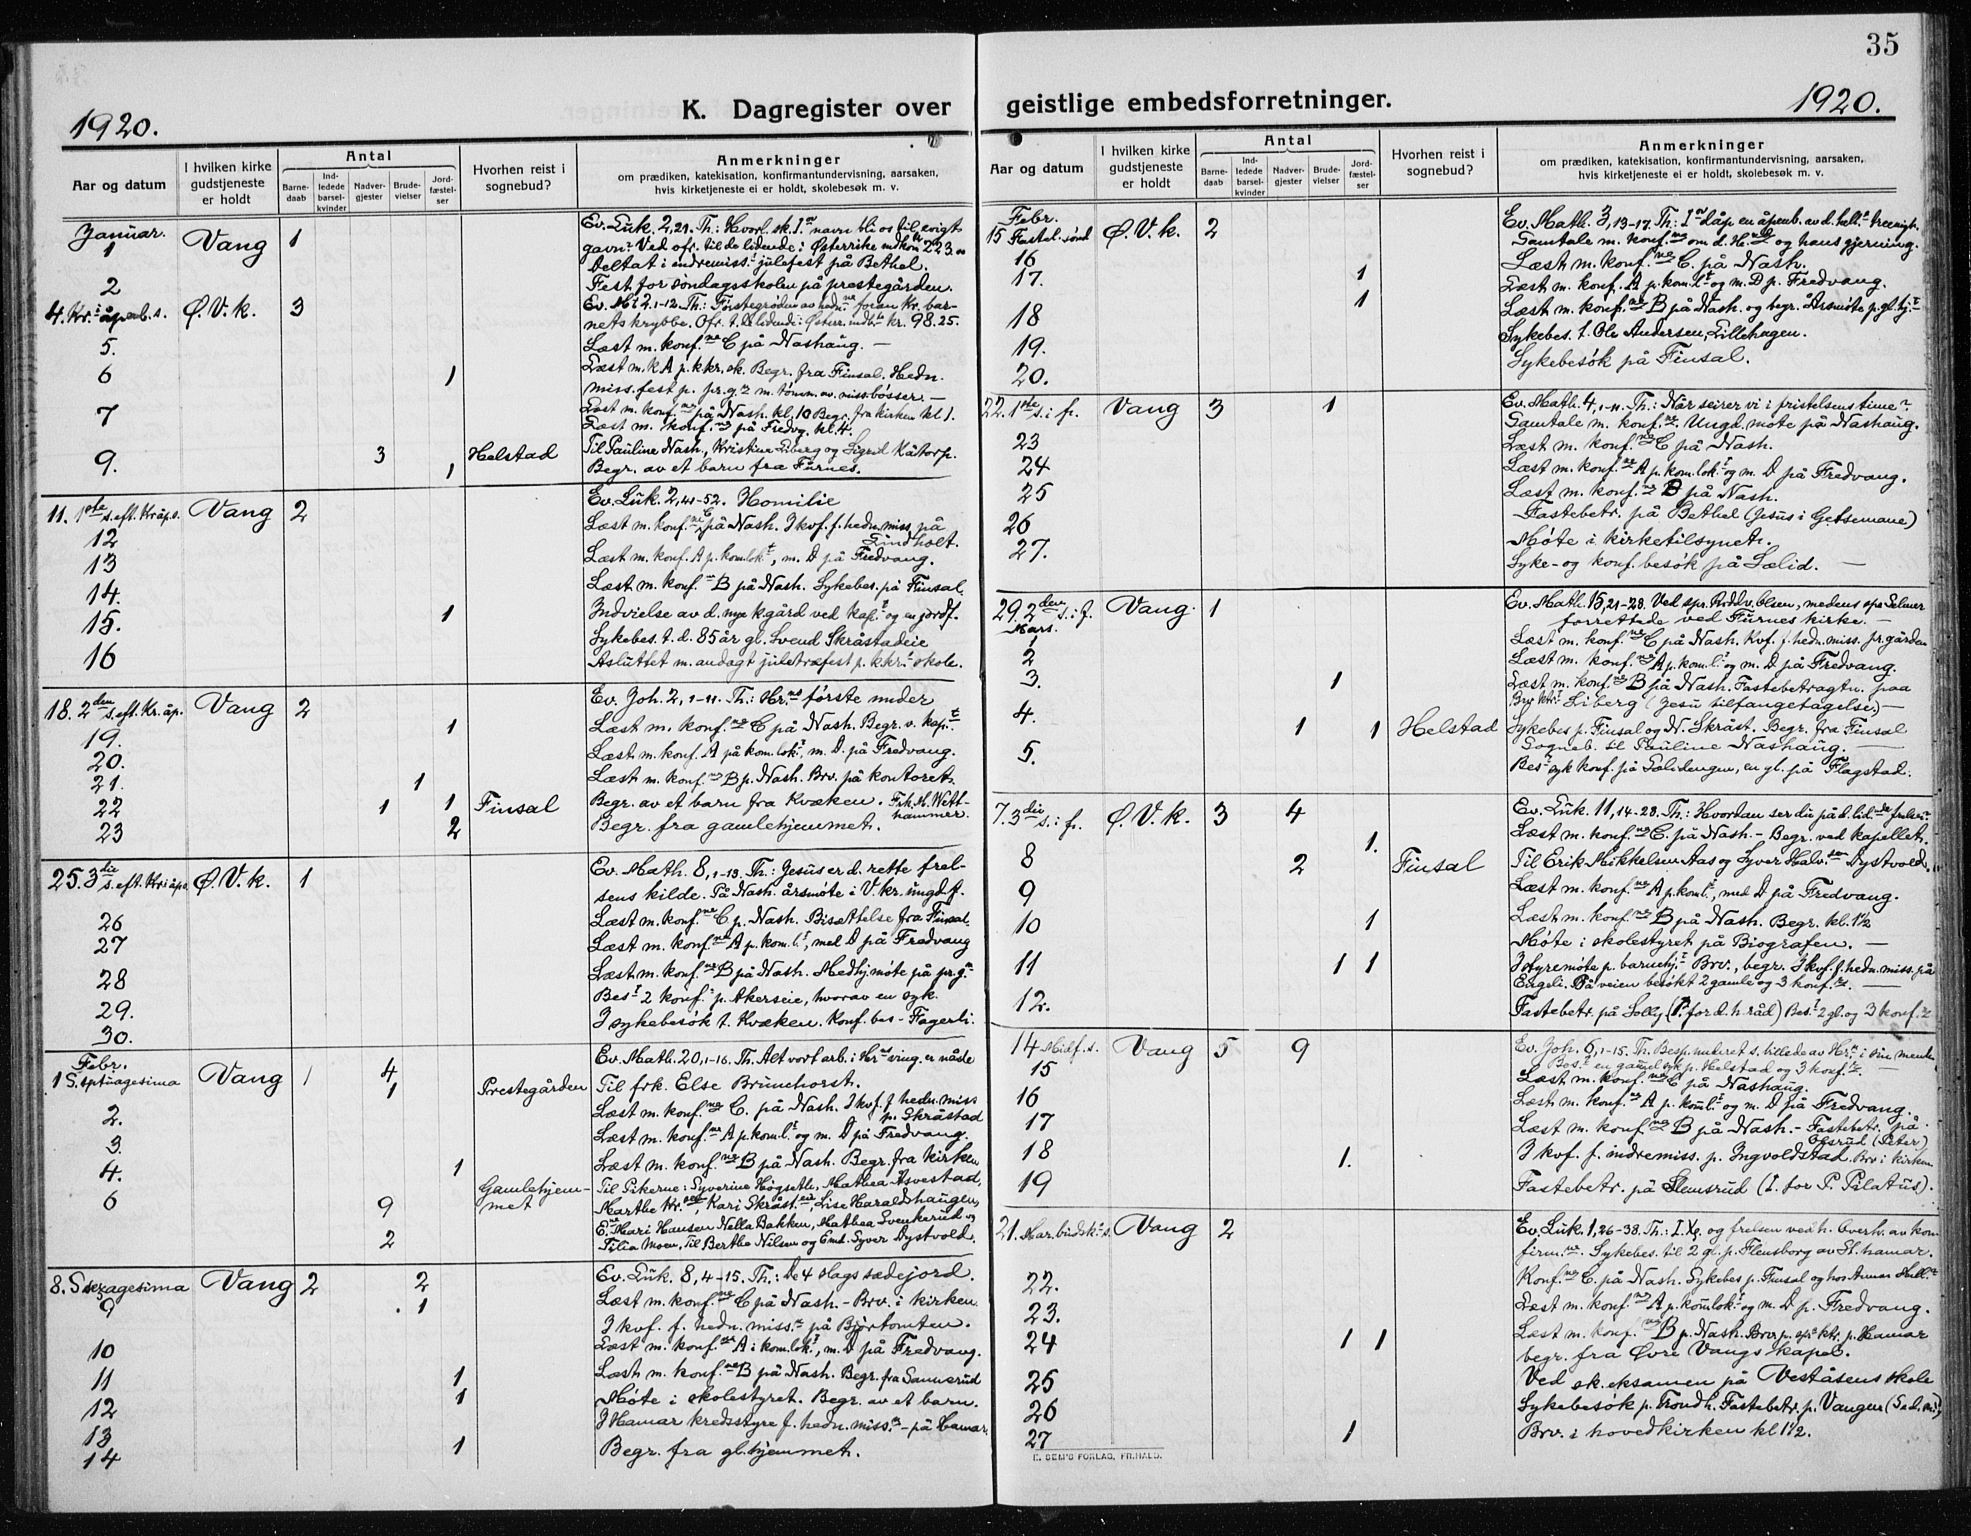 35
1920.
K. Dagregister over
geistlige embedsforretninger.
1920.
Aar og datum
I hvilken kirke gudstjeneste er holdt
Antal
Barnedaab
Indledede barselkvinder
Nadvergjester
Brudevielser
Jordfæstelser
Hvorhen reist i sognebud?
Anmerkninger
om prædiken, katekisation, konfirmantundervisning, aarsaken,
hvis kirketjeneste ei er holdt, skolebesøk m. v.
Januar.
1 Vang 1 Ev. Luk. 2,21. Th: Hvorl. sk. I navn bli os til evigt
gavn? Ved ofr. til de lidende i Østerrike indkom 223.00
Deltat i indremiss. julefest på Bethel.
2 Fest for søndagsskolen på prestegården.
4. Kr. åpenb. s. Ø. V. k. 3 Ev. Mt 2,1-12. Th: Førstegrøden av hedn. foran Kr. bar-
nets krybbe. Ofr. t. de lidende i Østerr. indk. kr. 98.25.
5. Læst m. konf. C på Nashaug. —
6 1 Læst m. k A p. k.kr. sk. Begr. fra Finsal. Hedn.
miss. fest p. pr. g. m. tömm. av miss. bösser. —
7 Læst m. konf. på Nash. kl. 10 Begr. fra kirken kl 1.
Læst m. konf. på Fredv. kl. 4.
9. 3 Helstad Til Pauline Nash., Kristine Liberg og Sigrid Kåtorp.
1 Begr. av et barn fra Furnes.
11. 1ste s. eft. Kr åp. s. Vang 2 Ev. Luk. 2,41-52. Homilie
12 Læst m. konf. C på Nash. I kvf. f. hedn. miss. på
Lindholt.
13 Læst m. konf. A p. kom. lok., m. D på Fredvang.
14. Læst m. konf. B på Nash. Sykebes. på Finsal.
15. 1 Indvielse av d. nye kgård ved kap. og en jordf.
Sykebes. t. d. 85 år gl. Svend Skråstadeie
16 Asluttet m. andagt juletræfest p. kkr. skole.
18. 2den s. eft. Kr. åp. Vang 2 Ev. Joh. 2, 1-11. Th.: Hr. første under
19. 1 Læst m. konf. C på Nash. Begr. v. kap.
20. Læst m. konf. A på kom. lok., m. D. på Fredvang.
21. 1 Læst m. konf. B p. Nash. Brv. på kontoret.
22 1 1 Finsal Begr. av et barn fra Kvæken. Frk. M. Wett-
hammer.
23 2 Begr. fra gamlehjemmet.
25. 3die s. eft. Kr. åp. Ø. V. k. 1 Ev. Math. 8, 1-13. Th.: Jesus er d. rette frel-
sens kilde. På Nash. årsmøte i V. kr. ungd. f.
26 Læst m. konf. C p. Nash. Bisættelse fra Finsal.
27 Læst m. konf. A p. kom. l., med D på Fredvang
28 Læst m. konf. B på Nash. Medhj. møte på pr. g.
29. Bes. 2 konf. p. Akerseie, hvorav en syk.
30. 3 sykebesøk t. Kvæken. Konf. bes - Fagerli.
Febr.
1 Septuagesima Vang 1 4 Ev. Math. 20, 1-16. Th. Alt vort arb. i Hr ving. er nåde
1 Prestegården Til frk. Else Brunchorst.
2. Læst m. konf. C. på Nash. I kvf. f hedn. miss
p. Skråstad
3. Læst m. konf. A p. kom. l. og m. D på Fredvang.
4. 1 Læst m. konf. B på Nash. Begr. fra kirken
6 9 Gamlehjem-
met Til Pikerne: Syverine Høgseth, Mathea Åsvestad,
Marthe Kr., Kari Skråst., Lise Haraldshaugen,
E. Mari Hansen Nella Bakken, Mathea Svenkerud og
2 Tilia Moen. Til Berthe Nilsen og Emd. Syver Dystvold.
8. Sexagesima Vang 2 2 Ev. Luk. 8, 4-15. Th.: De 4 slags sædejord.
9 1 Læst m. konf. C på Nash. - Brv. i kirken.
I kvf. f. hedn. miss. på Bjørtomten.
10 Læst m. konf. A i kom. lok., m. D på Fredvang.
11 1 Læst m. konf. B på Nash. Begr. fra Sannerud
12 1 Møte i skolestyret. Begr. av et barn.
13 I Hamar kredsstyre f. hedn. miss. - på Hamar.
14 1 Begr. fra gl. hjemmet.
Aar og datum
I hvilken kirke gudstjeneste er holdt
Antal
Barnedaab
Indledede barselkvinder
Nadvergjester
Brudevielser
Jordfæstelser
Hvorhen reist i sognebud?
Anmerkninger
om prædiken, katekisation, konfirmantundervisning, aarsaken,
hvis kirketjeneste ei er holdt, skolebesøk m. v.
Febr.
15 Fastel. sønd Ø. V. k. 2 Ev. Math. 3, 13-17. Th: I dåp en åpenb. av d. hell. treenigh.
Samtale m. konf. om d. H. og hans gjerning.
16 Læst m. konf. C. på Nash.
17. 1 Læst m. konf. A p. kom. l. og m. D p. Fredvang.
18 1 Læst m. konf. B på Nash. og begr. Årsmøte p. gl. hj.
19. Sykebes. t. Ole Andersen, Lillehagen.
20. Sykebesök på Finsal.
22. 1ste s. i f. Vang 3 1 Ev. Math. 4, 1-11. Th: Når seirer vi i fristelsens time?
Samtale m. konf. Ungd. møte på Nashaug.
23 Læst m. konf. C på Nash.
24 Læst m. konf. A p. kom. lok. og m. D på Fredvang.
25 Læst m. konf. B på Nash.
26 Fastebetr. på Bethel (Jesus i Getsemane)
27. Møte i kirketilsynet.
Syke- og konf. besök på Sælid. —
29. 2den s. i f. Vang 1 Ev. Math. 15, 21-28. Ved spr. Roddv. Olsen, medens spr Selmer
forrettede ved Furnes kirke. —
Mars.
1 Læst m. konf. C på Nash. Kvf. f. hedn. miss. pr. gården
2 Læst m. konf. A p. kom. l. og m. D på Fredvang.
3. 1 Læst m. konf. B på Nash. Fastebetragtn. paa
Brv ktr. Liberg (Jesu tilfangetagelse) —
4. 1 1 Helstad Sykebes p. Finsal og N. Skråst. Begr. fra Finsal
Sogneb. til Pauline Nashaug. —
5. Bes. syk konf. på Sælidengen, en gl. på Flagstad.
7. 3die s. i f. Ø. V. k. 3 4 Ev. Luk. 11, 14-28. Th.: Hvordan ser du på d. lid. frelser?
1. Læst m. konf. C. på Nash. - Begr. ved kapellet.
8 2 Finsal Til Erik Mikkelsen Aas og Syver Halv. Dystvold.
9 Læst m. konf. A p. kom. l., med D på Fredvang.
10 1 Læst m. konf. B på Nash. Begr. kl. 1½
Møte i skolestyret på Biografen. —
11 1 1 I styremöte p. barnehj. Brv., begr. I kvf. f. hedn. miss. på
Engeli. På veien besøkt 2 gamle og 3 konf. —
12. Fastebetr. på Solly (P. for d. h. råd) Bes. 2 gl. og 3 konf.
14 Midf. s. Vang 5 9 Ev. Joh. 6, 1-15. Th. Besp. underet s. billede av Hr. i sin menh
15 Bes. en gammel syk p. Helstad og 3 konf. —
Læst m. konf. C på Nashaug.
16 Læst m. konf. A p. kom. l. og m. D på Fredvang.
17 Læst m. konf. B på Nash. - Fastebetr. på
Olsrud (Peter)
18 1. I kvf. f. indremiss. p. Ingvoldstad. Brv i kirken
19 Fastebetr. på Slemsrud (I. for P. Pilatus).
21. Mar. budsk. s. Vang 2 Ev. Luk. 1, 26-38. Th: og frelsen ved h. Overh. av kon
firm. Sykebes. til 2 gl. p. Flensborg av St. hamar.
22. Konf. C. på Nash. Sykebes p. Finsal og hos
23. Læst m. konf. A p. kom. lok. og m. D p. Fredvang.
24 1 1 Læst m. konf. B p. Nash. Brv. p. sp. ktr. p. Hamar
begr. fra Øvre Vangs kapel.
25 Ved sk. eksamen på Veståsens skole
26 Sykebesök p. Trondh. Fastebetr. p. Vangen
27 1 Brv. i hovedkirken kl 1½.
E. SEM'S FORLAG, FR.HALD.